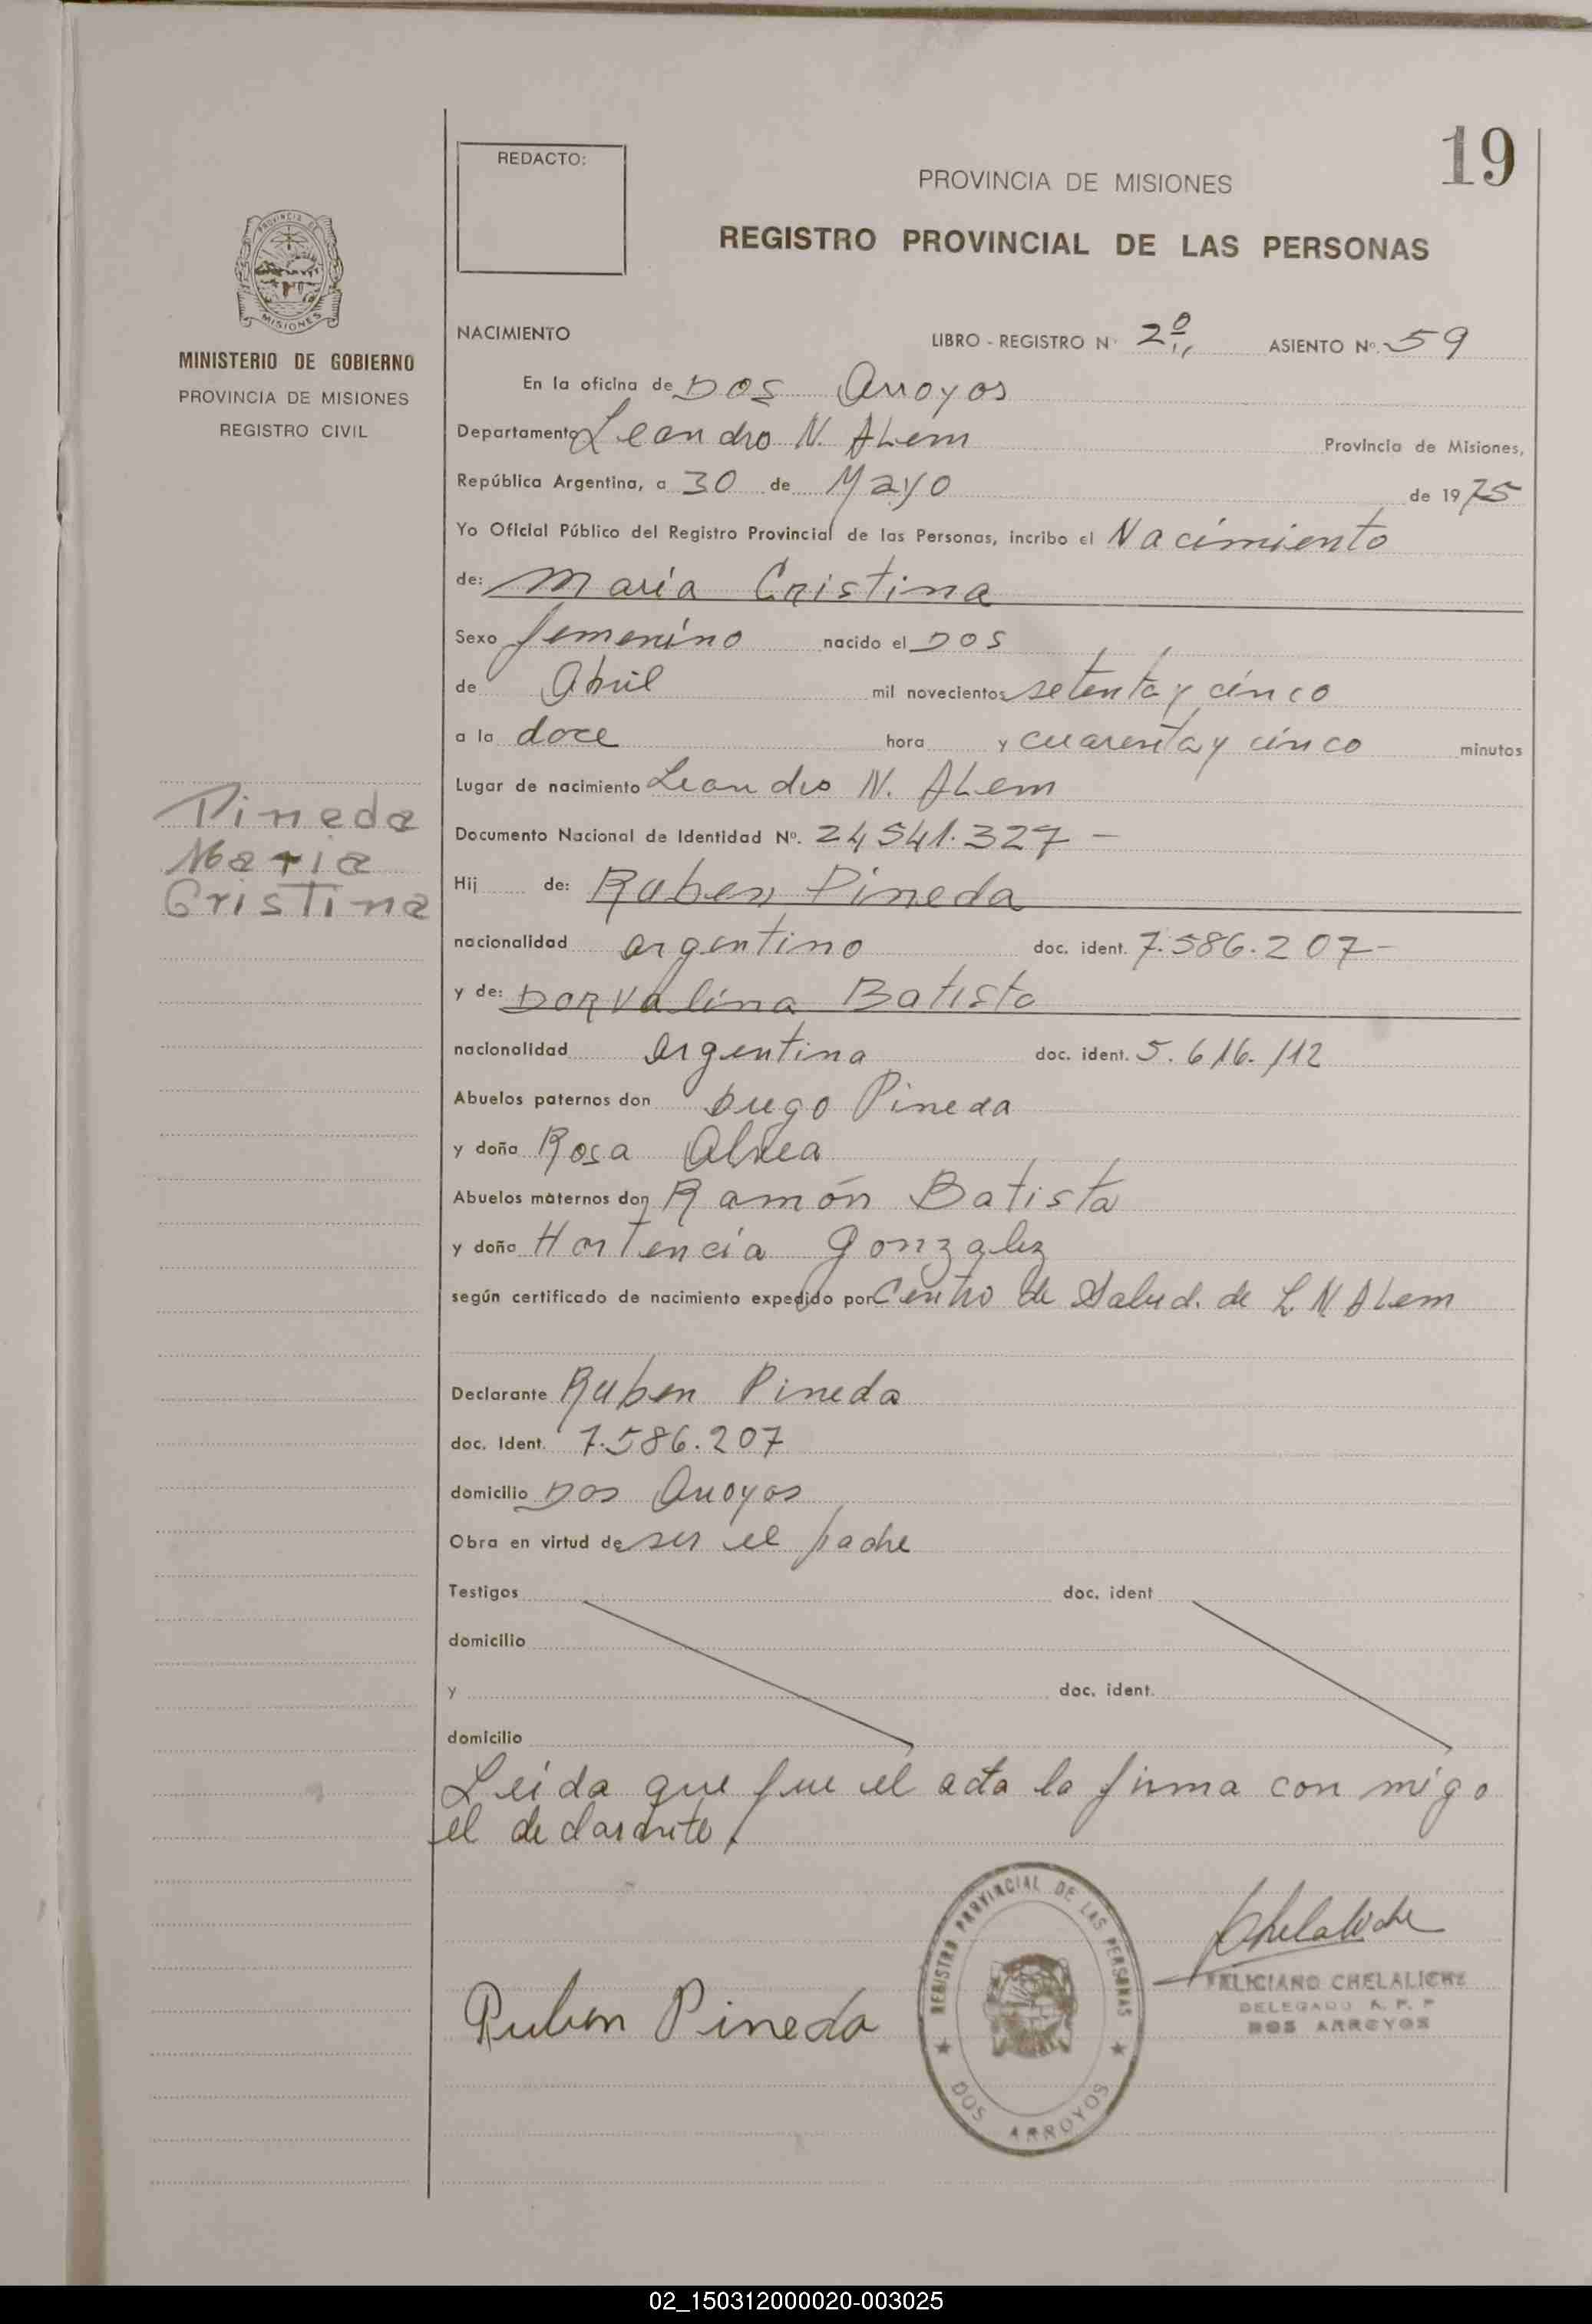 19
REDACTO:
PROVINCIA DE MISIONES
REGISTRO PROVINCIAL DE LAS PERSONAS
PROVINCIA DE
MISIONES
MINISTERIO DE GOBIERNO
PROVINCIA DE MISIONES
REGISTRO CIVIL
NACIMIENTO LIBRO - REGISTRO N° 2º ASIENTO Nº. 59
En la oficina de Dos Arroyos
Departamento Leandro N. ALem Provincia de Misiones,
República Argentina, a 30 de Mayo de 1975
Yo Oficial Público del Registro Provincial de las Personas, incribo el Nacimiento
de: Maria Cristina
Sexo femenino nacido el Dos
de Abril mil novecientos setenta y cinco
a la doce hora y cuarenta y cinco minutos
Lugar de nacimiento Leandro N. ALem
Pineda
Maria
Cristina
Documento Nacional de Identidad Nº. 24541.327 -
Hij de: Ruben Pineda
nacionalidad argentino doc. ident. 7.586.207-
y de: Dorvalina Batista
nacionalidad argentina doc. ident. 5.616.112
Abuelos paternos don Diego Pineda
y doña Rosa
Abuelos maternos don Ramón Batista
y doña Hortencia Gonzalez
según certificado de nacimiento expedido por Centro de Salud. de L. N ALem
Declarante Ruben Pineda
doc. Ident. 7.586.207
domicilio Dos Arroyos
Obra en virtud de ser el padre
Testigos doc. ident
domicilio
y doc. ident.
domicilio
Leida que fue el acta la firma con migo
el declarante.
REGISTRO PROVINCIAL DE LAS PERSONAS
DOS ARROYOS
Chelaliche
FELICIANO CHELALICHE
DELEGADO R. P. P
DOS ARROYOS
Ruben Pineda
02_150312000020-003025